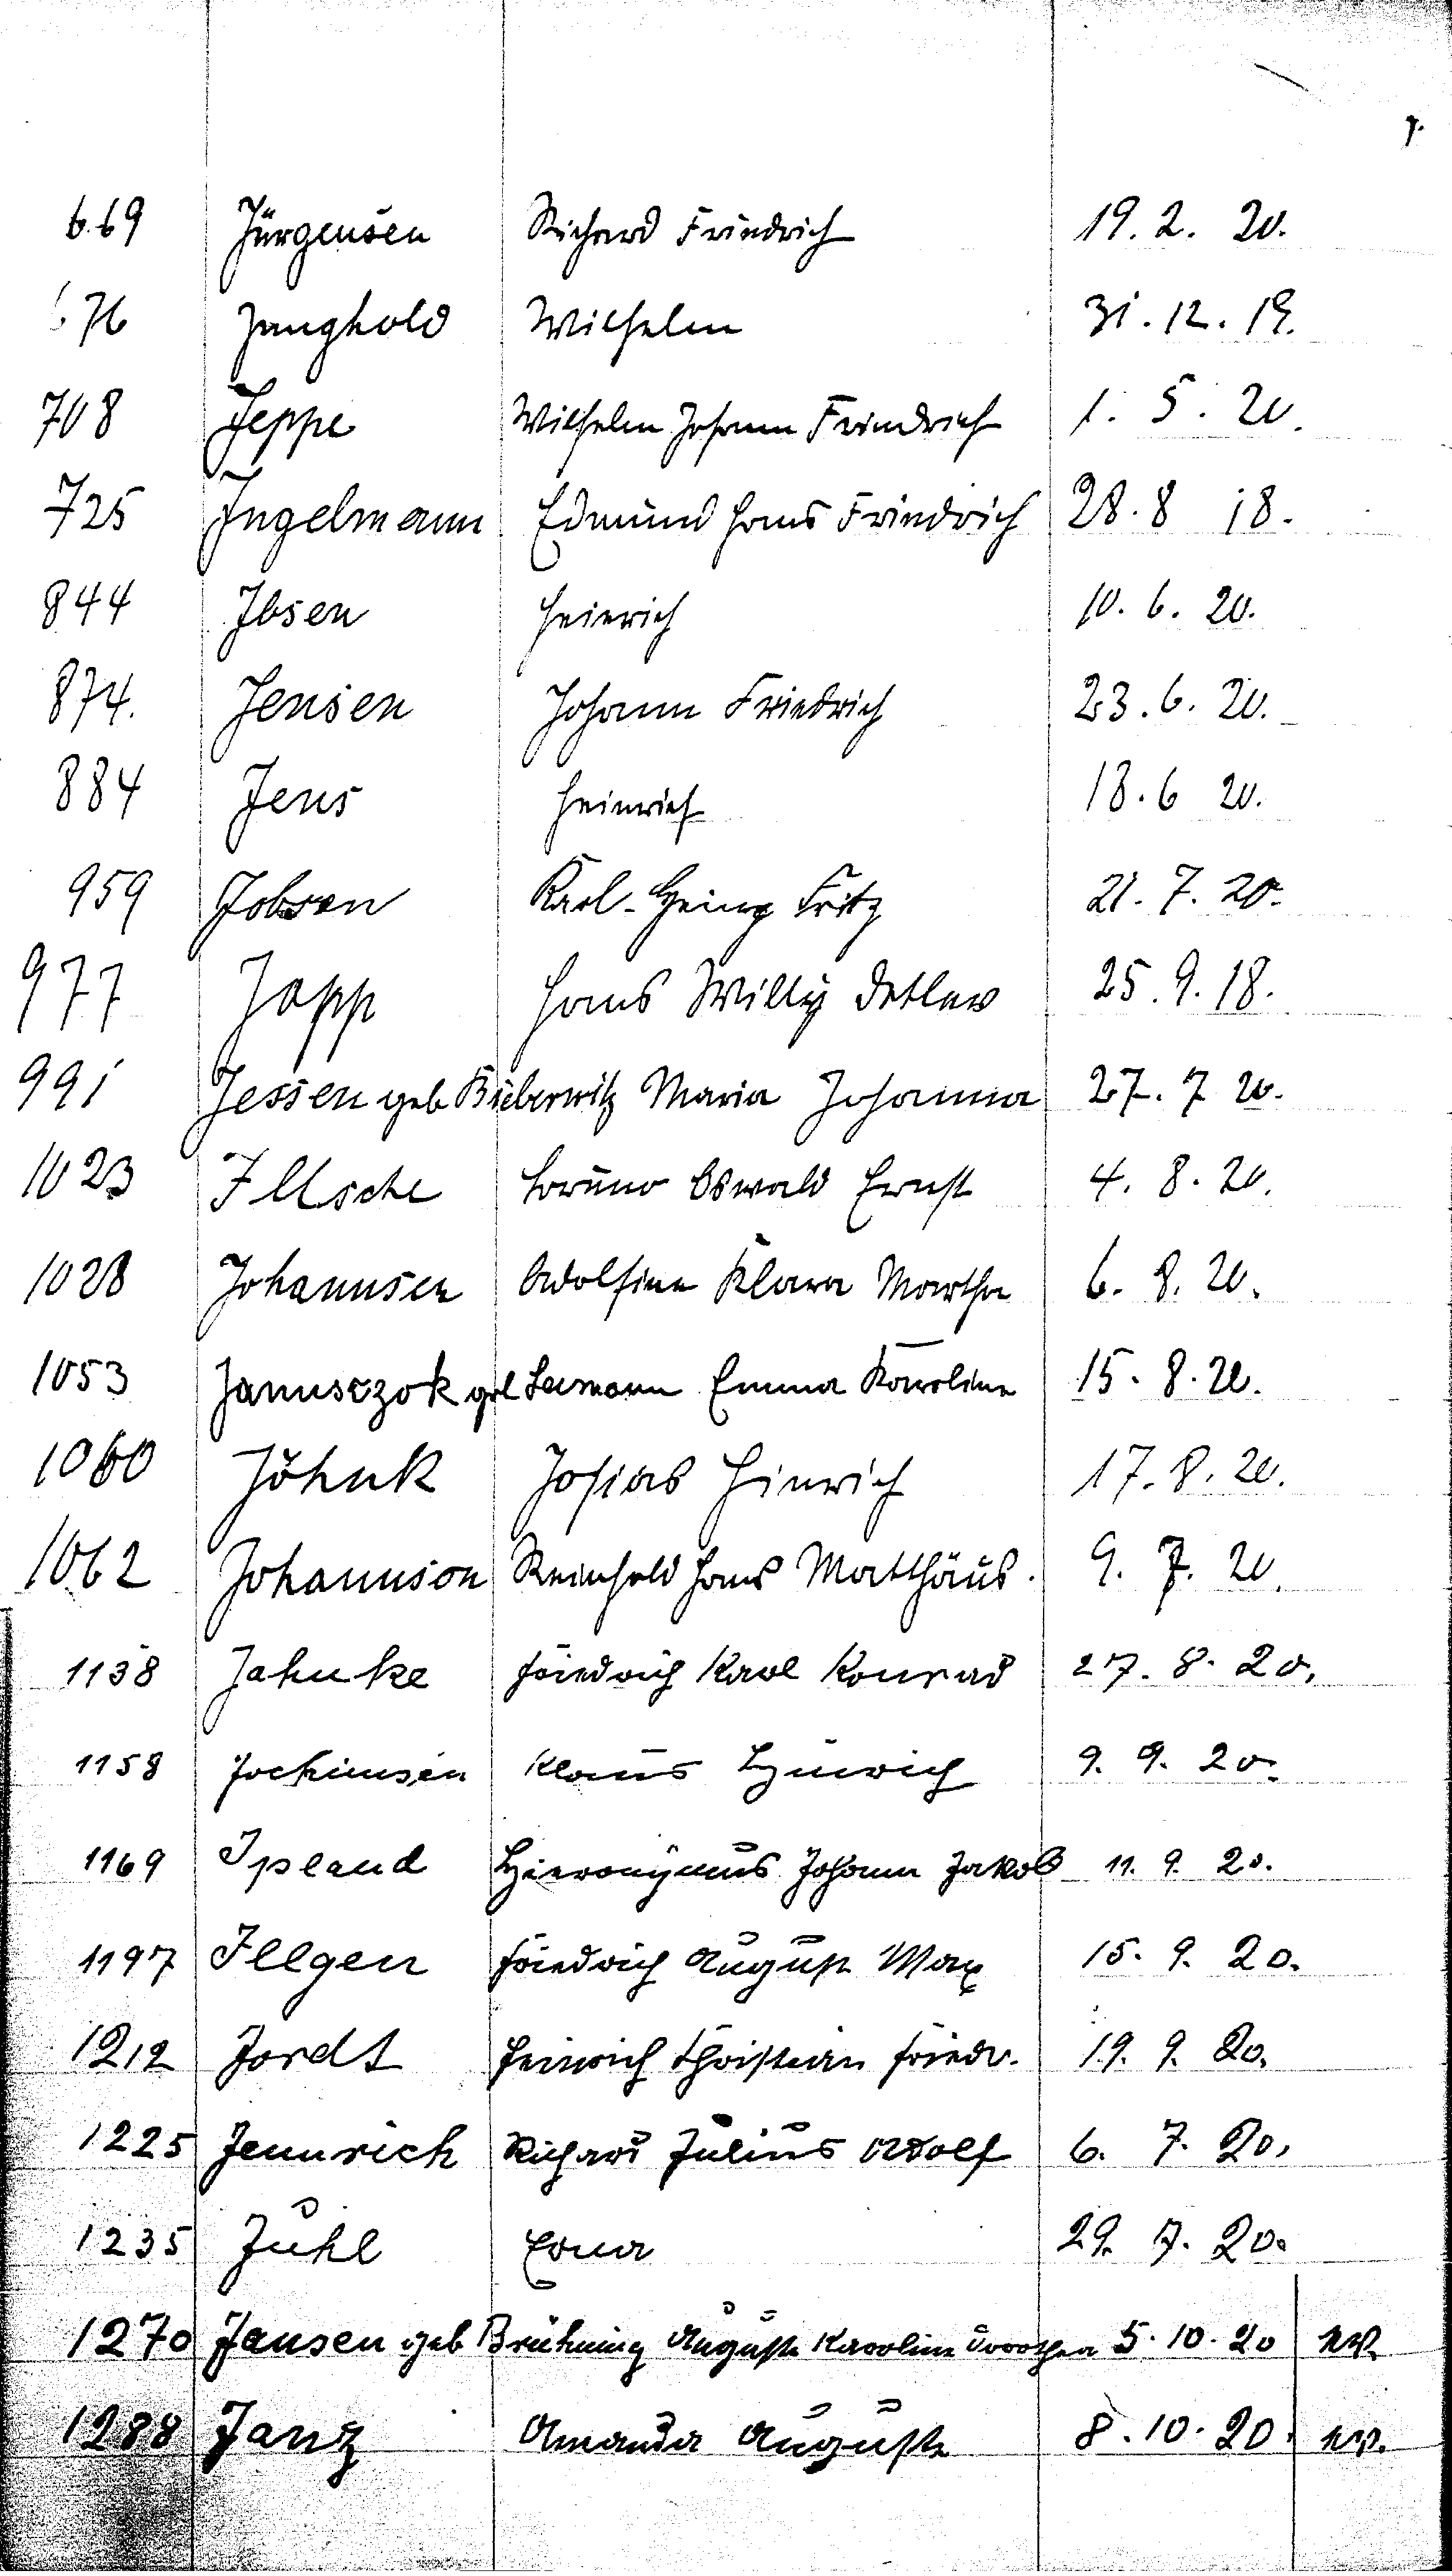 669 Jürgensen Richard Friedrich 19. 2. 20.
676 Junghold Wilhelm 31. 12. 19.
708 Jeppe Wilhelm Johann Friedrich 1. 5. 20.
725 Ingelmann Edmund Hans Friedrich 28. 8 18.
844 Ibsen Heinrich 10. 6. 20.
874. Jensen Johann Friedrich 23. 6. 20.
884 Jens Heinrich 18. 6 20.
959 Jobsen Karl-Heinz Fritz 21. 7. 20.
977 Japp Hans Willy Detlev 25. 9. 18.
991 Jessen geb Bieberwitz Maria Johanna 27. 7 20.
1023 Illsche Bruno Oswald Ernst 4. 8. 20.
1028 Johannsen Adolfine Klara Martha 6. 8. 20.
1053 Janusczok geb Emma Karoline 15. 8. 20.
1060 Jöhnk Josias Hinrich 17. 8. 20.
1062 Johannson Reinhold Hans Matthäus. 9. 7. 20.
1138 Jahnke Friedrich Karl Konrad 27. 8. 20.
1158 Jochimsen Klaus Hinrich 9. 9. 20.
1169 Ipland Hieronymus Johann Jakob 11. 9. 20.
1197 Illgen Friedrich August Max 15. 9. 20.
1212 Jordt Heinrich Christian Friedr. 19. 9. 20.
1225 Jennrich Richard Julius Adolf 6. 7. 20.
1235 Juhl Erna 29. 7. 20.
1270 Jansen geb Brühning Auguste Karoline Dorothea 5. 10. 20
1288 Janz Amanda Auguste 8. 10. 20.